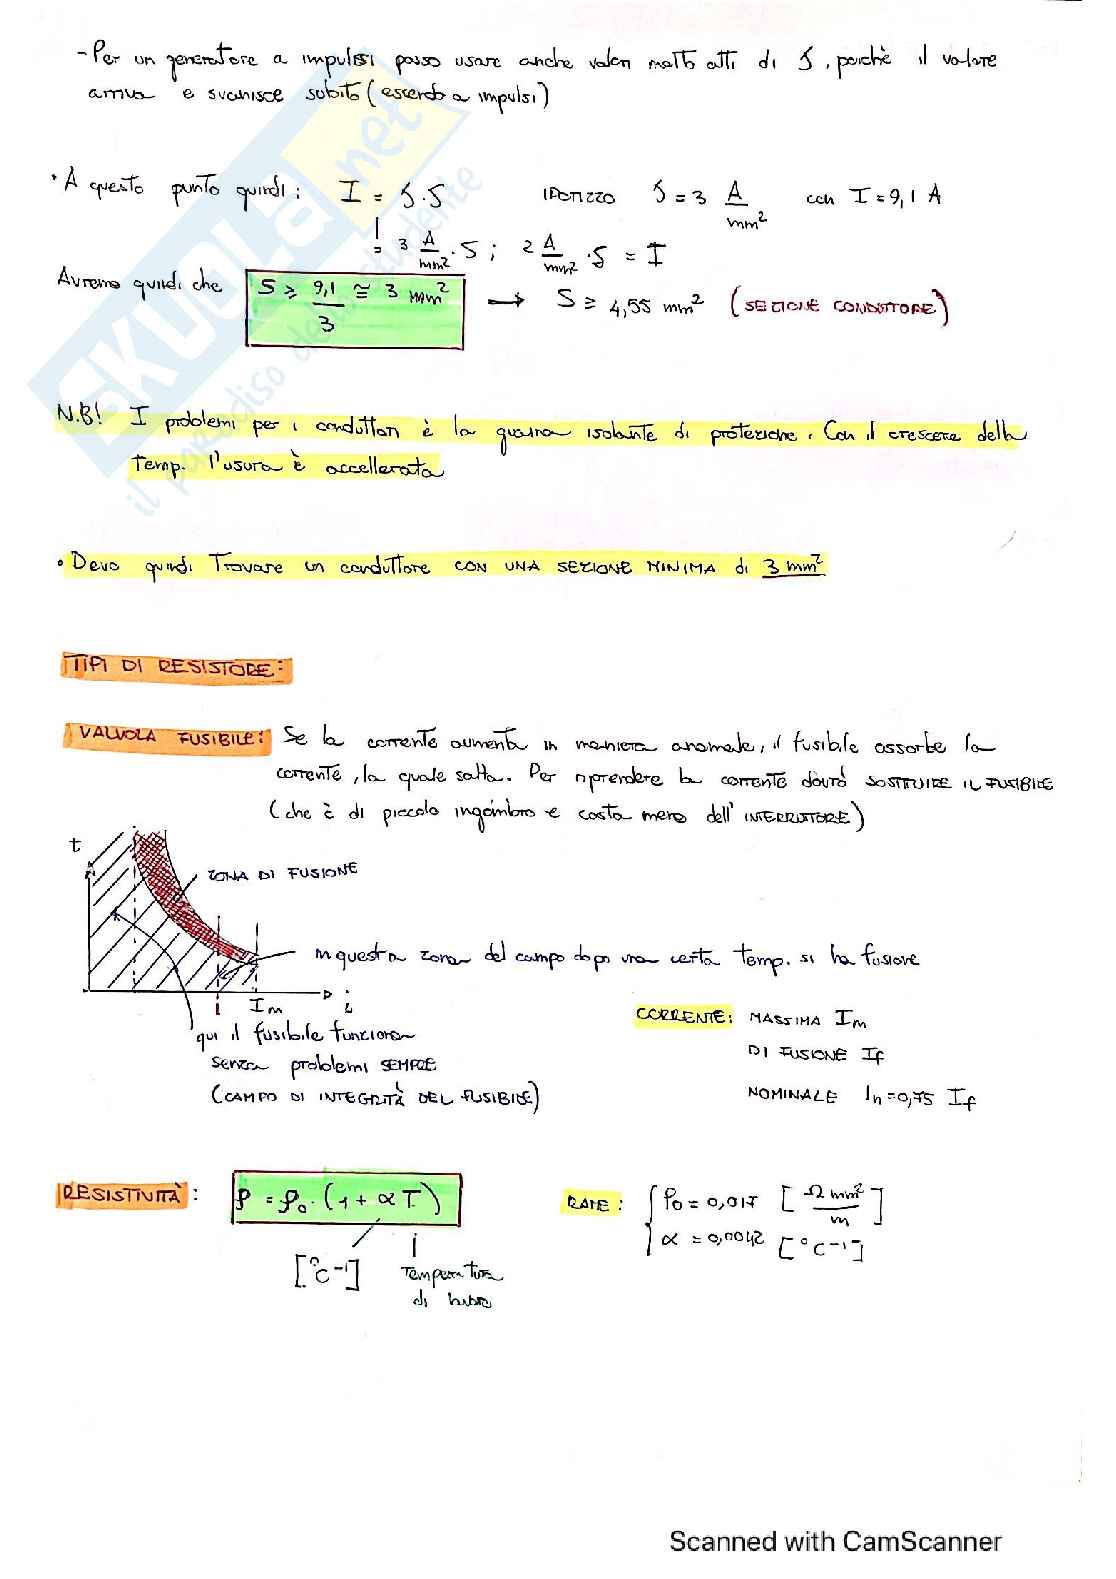 - Per un generatore a impulsi posso usare anche valori molto alti di J, poichè il valore
arriva e svanisce subito (essendo a impulsi)
• A questo punto quindi: I = J·S IPOTIZZO J = 3 A/mm² con I = 9,1 A
= 3 A/mm² · S ; 2 A/mm² · S = I
Avremo quindi che S ≥ 9,1/3 ≅ 3 mm² → S ≥ 4,55 mm² (SEZIONE CONDUTTORE)
N.B! I problemi per i conduttori è la guaina isolante di protezione. Con il crescere della
temp. l'usura è accellerata
• Devo quindi Trovare un conduttore CON UNA SEZIONE MINIMA di 3 mm²
TIPI DI RESISTORE:
VALVOLA FUSIBILE: Se la corrente aumenta in maniera anomale, il fusibile assorbe la
corrente, la quale salta. Per riprendere la corrente dovrò SOSTITUIRE IL FUSIBILE
(che è di piccolo ingombro e costa meno dell' INTERRUTTORE)
t
ZONA DI FUSIONE
in questa zona del campo dopo una certa temp. si ha fusione
I Im i
qui il fusibile funziona
senza problemi SEMPRE
(CAMPO DI INTEGRITÀ DEL FUSIBILE)
CORRENTE: MASSIMA Im
DI FUSIONE If
NOMINALE In = 0,75 If
RESISTIVITÀ: ρ = ρ₀·(1 + αT) RAME: { ρ₀ = 0,017 [Ω mm²/m]
α = 0,0042 [°C⁻¹]
[°C⁻¹] Temperatura
di
SKUOLA.net
il paradiso dello studente
Scanned with CamScanner